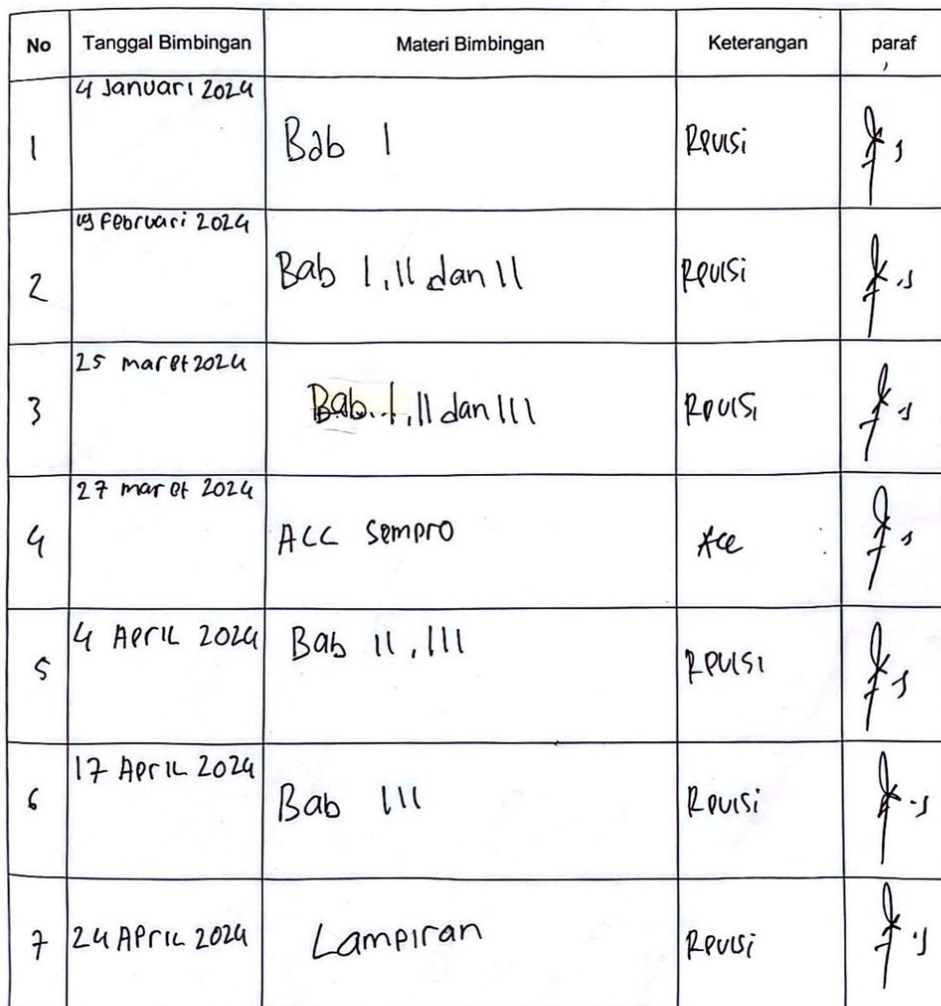 No Tanggal Bimbingan Materi Bimbingan Keterangan paraf
4 Januari 2024
1 Bab I Revisi
Februari 2024
2 Bab I, II dan II Revisi
25 maret 2024
3 Bab. I, II dan III Revisi
27 maret 2024
4 ACC Sempro Acc
5 4 April 2024 Bab II, III Revisi
17 April 2024
6 Bab III Revisi
7 24 April 2024 Lampiran Revisi